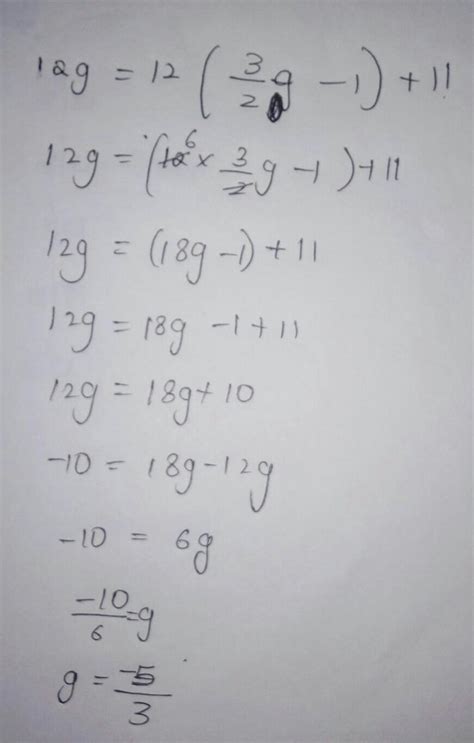 12g = 12 ( 3/2 g - 1) + 11
12g = (12 6 x 3/2 g - 1) + 11
12g = (18g - 1) + 11
12g = 18g - 1 + 11
12g = 18g + 10
-10 = 18g - 12g
-10 = 6g
-10/6 = g
g = -5/3